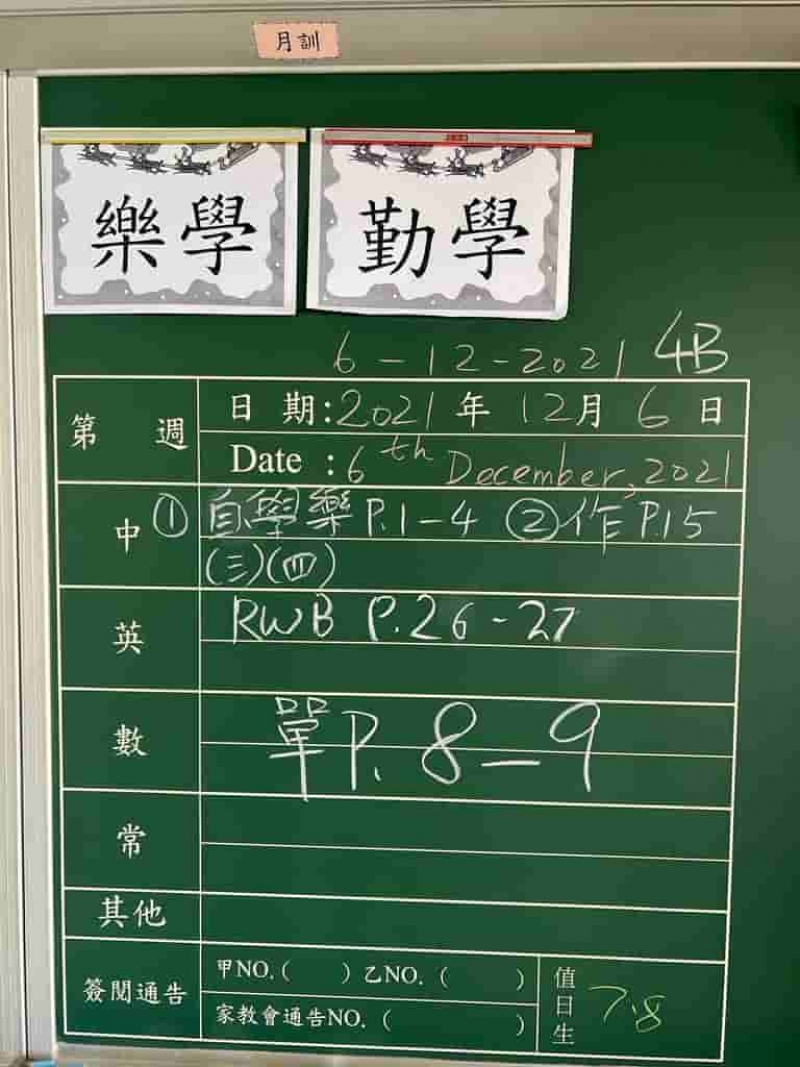 月訓
樂學
勤學
6-12-2021 4B
第 週
日 期:2021年 12月 6 日
Date :6th December, 2021
中
① 自學樂 P.1-4 ②作P.15
(三)(四)
英
RWB P.26-27
數
單P.8-9
常
其他
簽閱通告
甲NO.( ) 乙NO. ( )
家教會通告NO. ( )
值日生
7.8